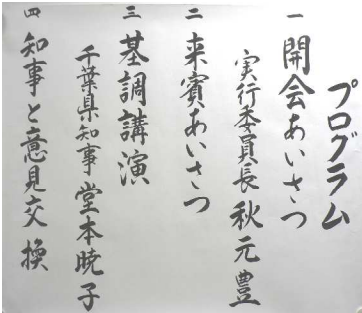 プログラム
一 開会あいさつ
実行委員長 秋元豊
二 来賓あいさつ
三 基調講演
千葉県知事 堂本暁子
四 知事と意見交換